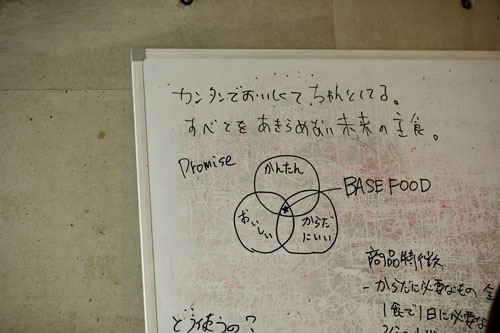 カンタンでおいしくて、ちゃんとしてる。
すべてをあきらめない未来の主食。
Promise
かんたん
BASE FOOD
おいしい
からだ
にいい
商品特徴
- からだに必要なもの 全
1食で1日に必要な
どう使うの?